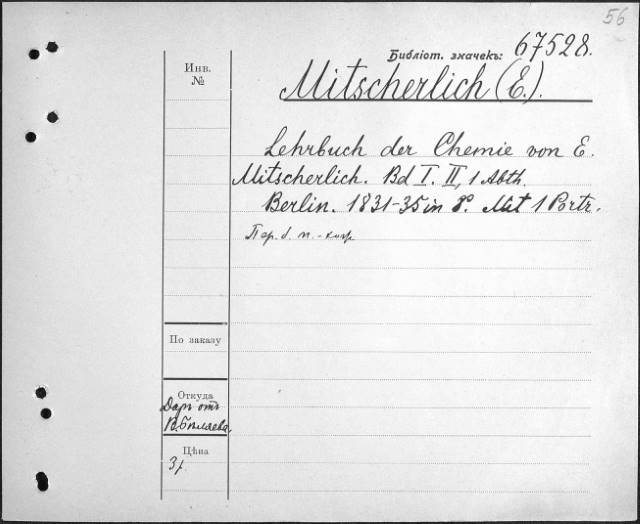 56
Библіот. значекъ: 67528.
Инв.
№
Mitscherlich (E.).
Lehrbuch der Chemie von E.
Mitscherlich. Bd I. II, 1 Abth.
Berlin. 1831-35 in 8°. Mit 1 Portr.
По заказу
Откуда
Даръ отъ
В. Бѣляева.
Цѣна